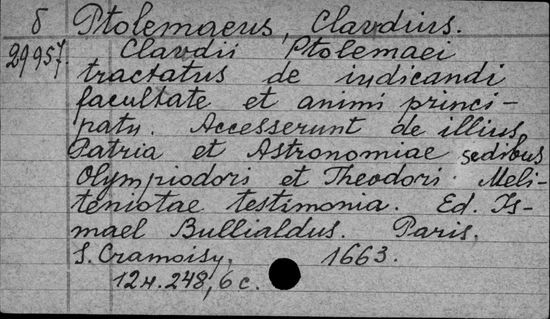 δ Ptolemaeus, Clavdius.
29957. Clavdii Ptolemaei
tractatus de iudicandi
facultate et animi princi-
patu. Accesserunt de illius
Patria et Astronomiae sedibus
Olympiodori et Theodori Meli-
teniotae testimonia. Ed. Is-
mael Bullialdus. Paris,
S. Cramoisy, 1663.
12н. 248, 6 с.